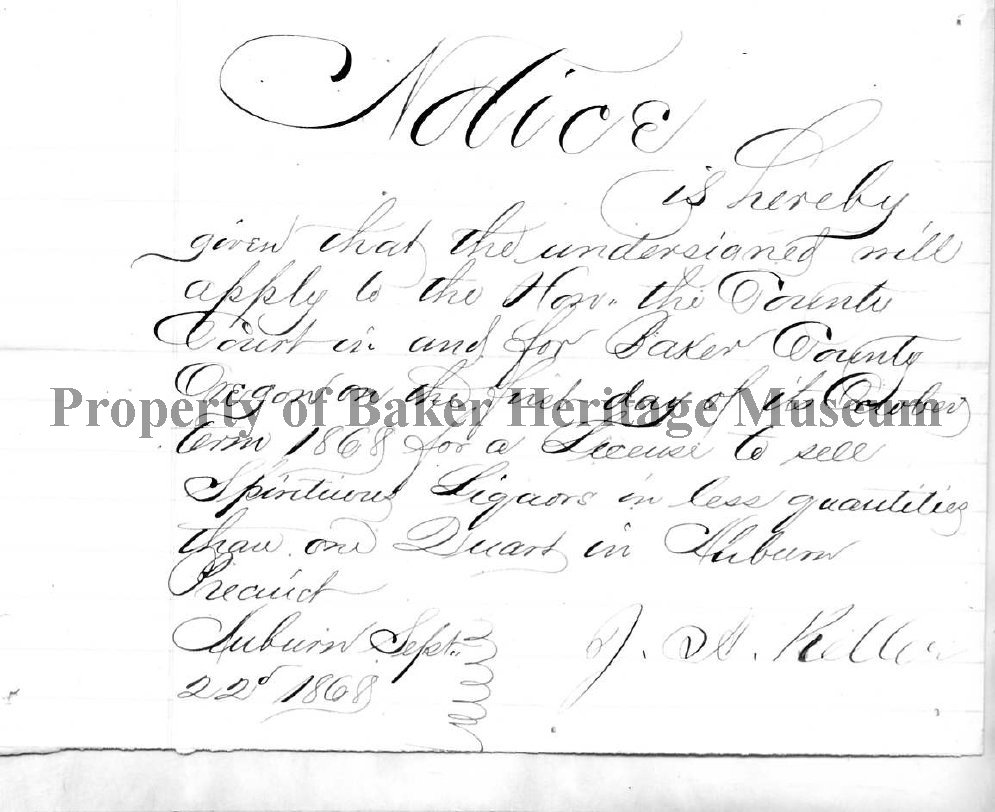 Notice
is hereby
given that the undersigned will
apply to the Hon. the County
Court in and for Baker County
Oregon on the first day of its October
Property of Baker Heritage Museum
term 1868 for a License to sell
Spirituous Liquors in less quantities
than one Quart in Auburn
Precinct
Auburn Sept.
22d 1868
J. Keller